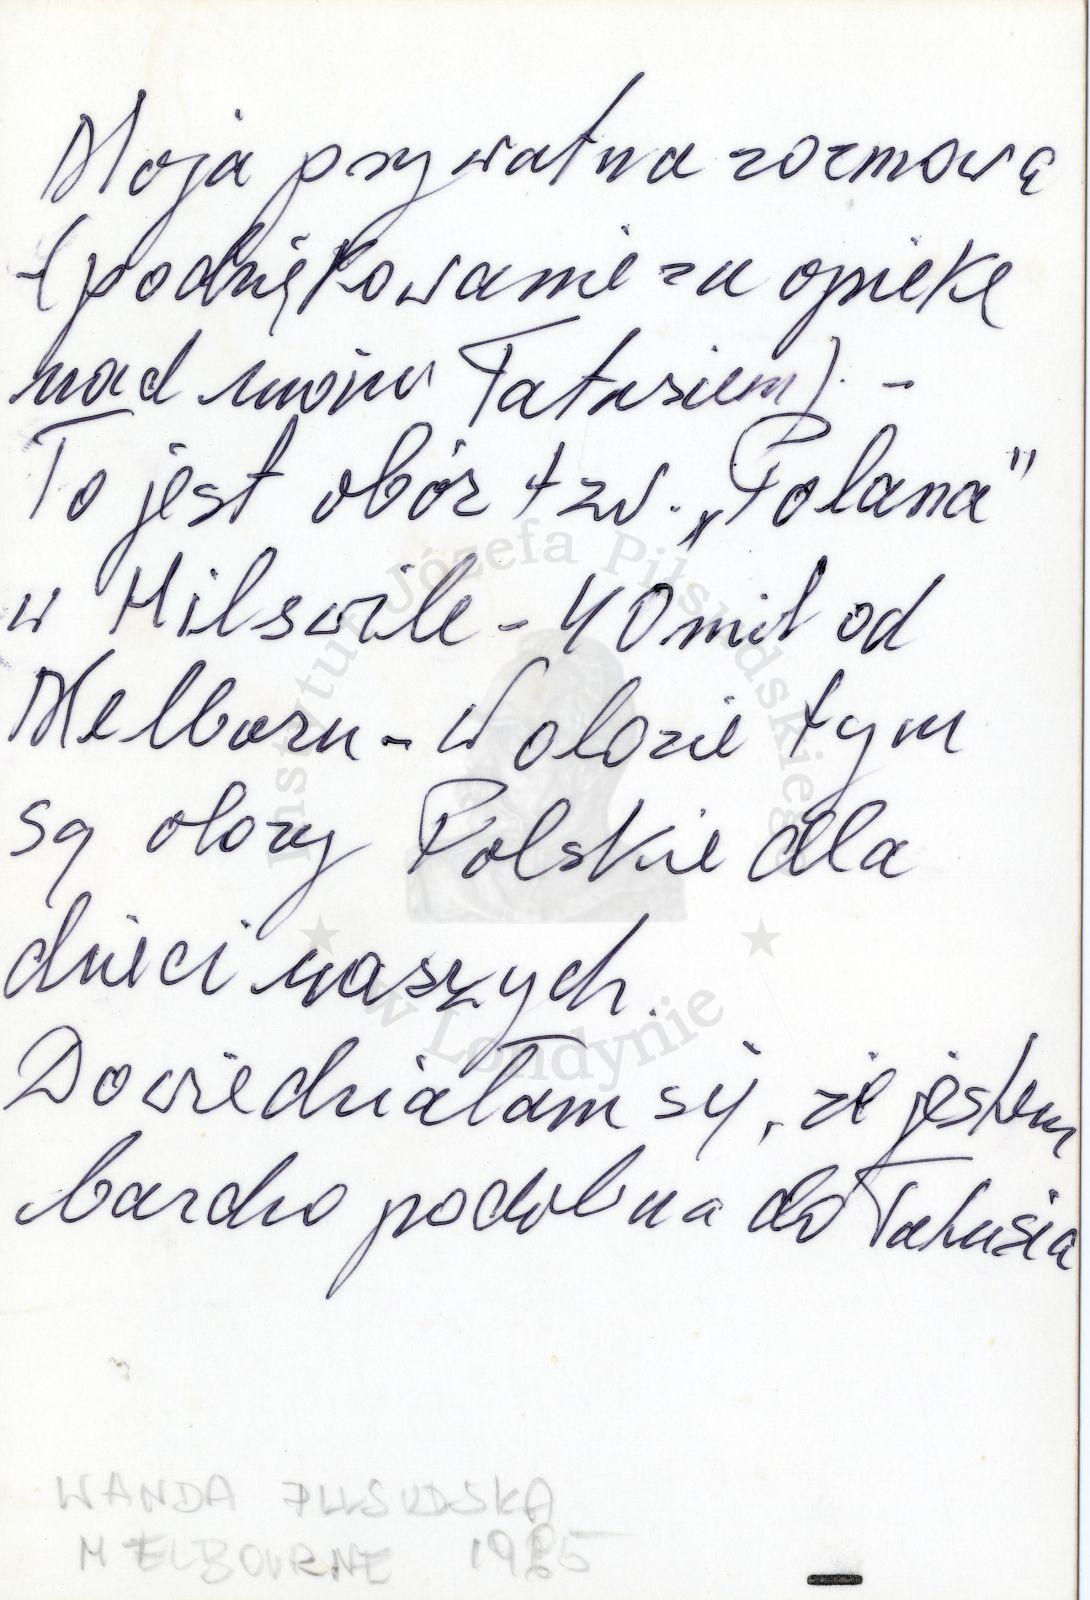 Moja prywatna rozmowa
- (podziękowanie za opiekę
nad moim Tatusiem). -
To jest obóz tzw. „Polana"
w Hilsvile - 40 mil od
Melborn - W obozie tym
są obozy Polskie dla
dzieci naszych.
Dowiedziałam się, że jestem
bardzo podobna do Tatusia
WANDA PIŁSUDSKA
MELBOURNE 1985
Instytut Józefa Piłsudskiego
w Londynie